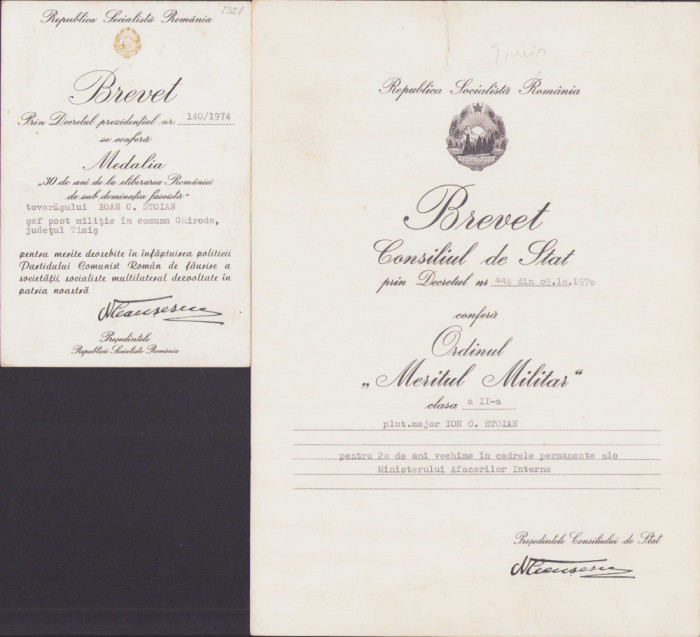 Republica Socialistă România
Brevet
Prin Decretul prezidențial nr. 140/1974
se conferă
Medalia
„30 de ani de la eliberarea României
de sub dominația fascistă“
tovarășului IOAN C. STOIAN
șef post miliție în comuna Ghiroda,
județul Timiș
pentru merite deosebite în înfăptuirea politicii
Partidului Comunist Român de făurire a
societății socialiste multilateral dezvoltate în
patria noastră
NCeaușescu
Președintele
Republicii Socialiste România
Timiș
Republica Socialistă România
Brevet
Consiliul de Stat
prin Decretul nr 448 din 09.10.1970
conferă
Ordinul
„Meritul Militar“
clasa a II-a
plut.major ION C. STOIAN
pentru 20 de ani vechime în cadrele permanente ale
Ministerului Afacerilor Interne
Președintele Consiliului de Stat
NCeaușescu